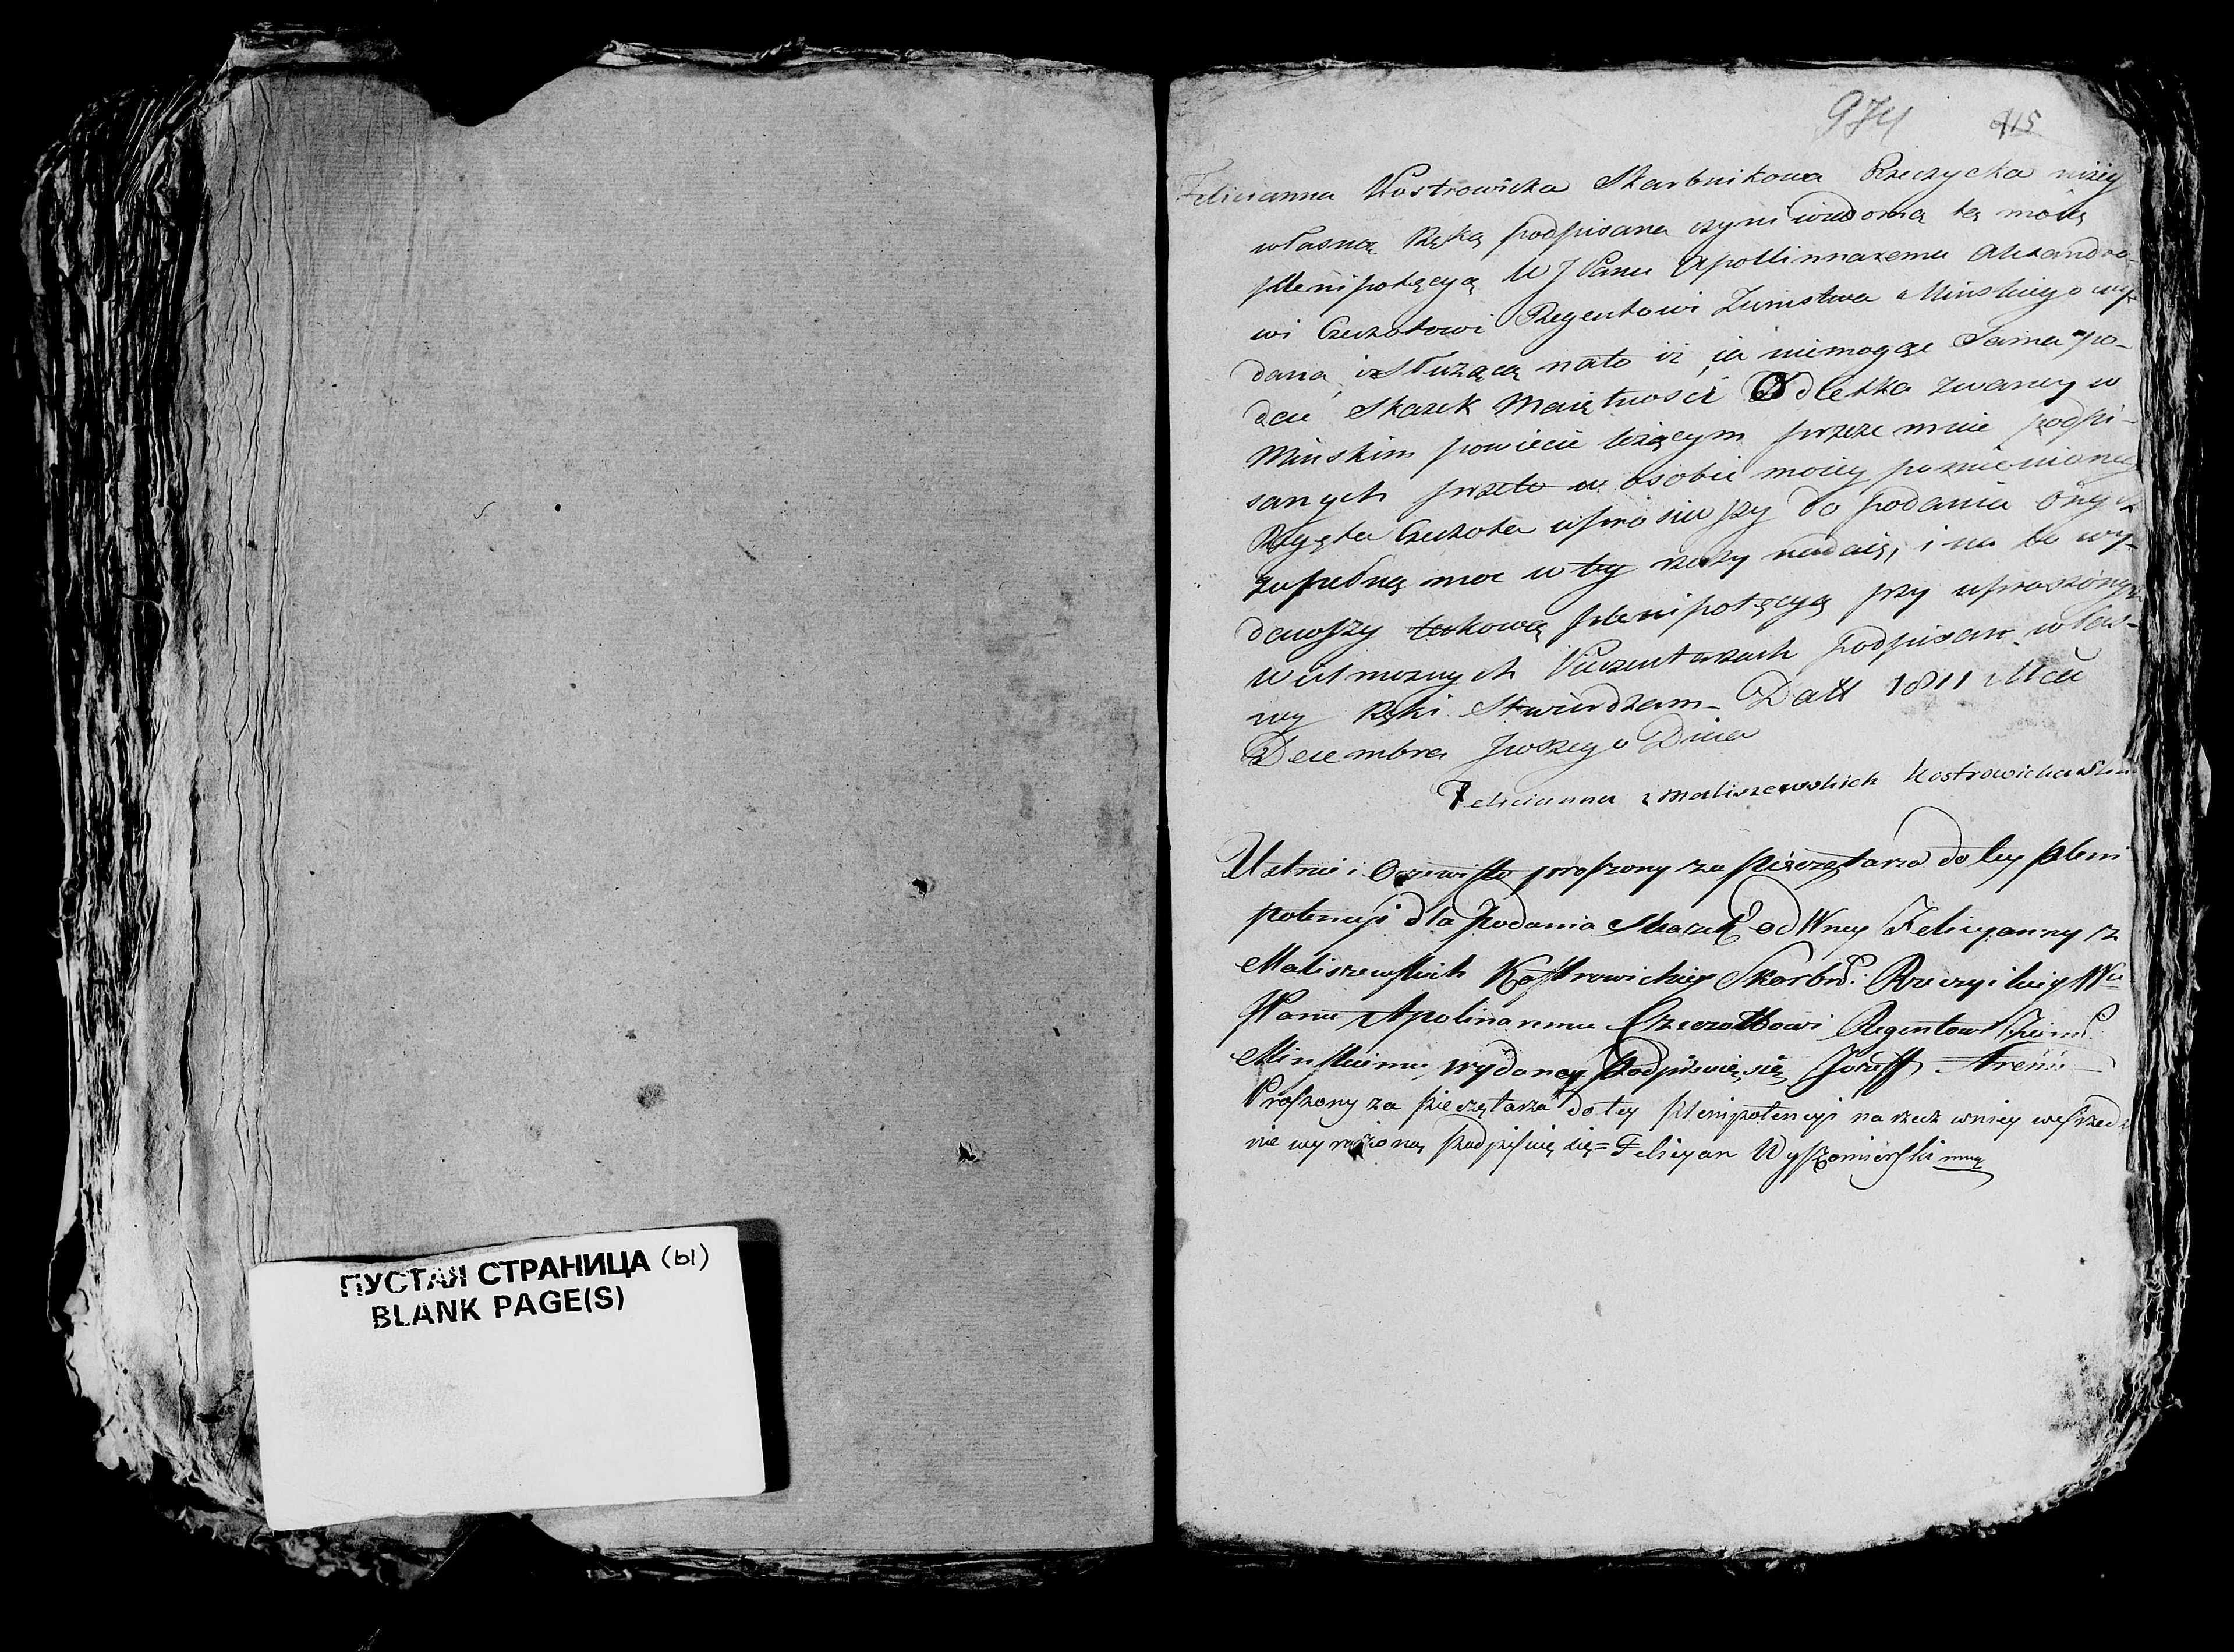 ПУСТАЯ СТРАНИЦА (ы)
BLANK PAGE(S)
974 415
Felicianna Kostrowicka Skarbnikowa Rzeczycka niżey
własną Ręką podpisana czyni wiadomą tę moią
plenipotęcyą WJ Panu Apollinnaremu Alexandro-
wi Czeczotowi Regentowi Ziemstwa Minskiego wy-
daną i służącą nato iż ja niemogąc Sama po-
dać Skazek Maiętnosci zwaney w
Minskim powiecie leżącym przeze mnie podpi-
sanych przeto w osobie moiey pomienioneg
Regęta Czeczota uprosiwszy do podania onych
zupełną moc w tey rzeczy nadaię, i na to wy-
dawszy takową plenipotęcyą przy uproszonych
Wielmoznych Pieczentarzach podpisem włas-
ney Ręki Stwierdzam - Datt 1811 Mca
Decembra Dnia
Felicianna z Maliszewskich Kostrowicka
Ustnie i Oczewisto proszony za pieczętarza do tey pleni
potencyi dla podania Skazek od Wney Felicyanny z
Maliszewskich Kostrowickiey Skarbn: Rzeczyckiey
Panu Apolinaremu Czeczottowi Regentowi Ziem
Minskiemu wydaney Podpisuię się Jozeff
Proszony za pieczętarza do tey Plenipotencyi na rzecz wniey
nie wyrażoną podpisuię się = Felicyan Wyszomierski mpą